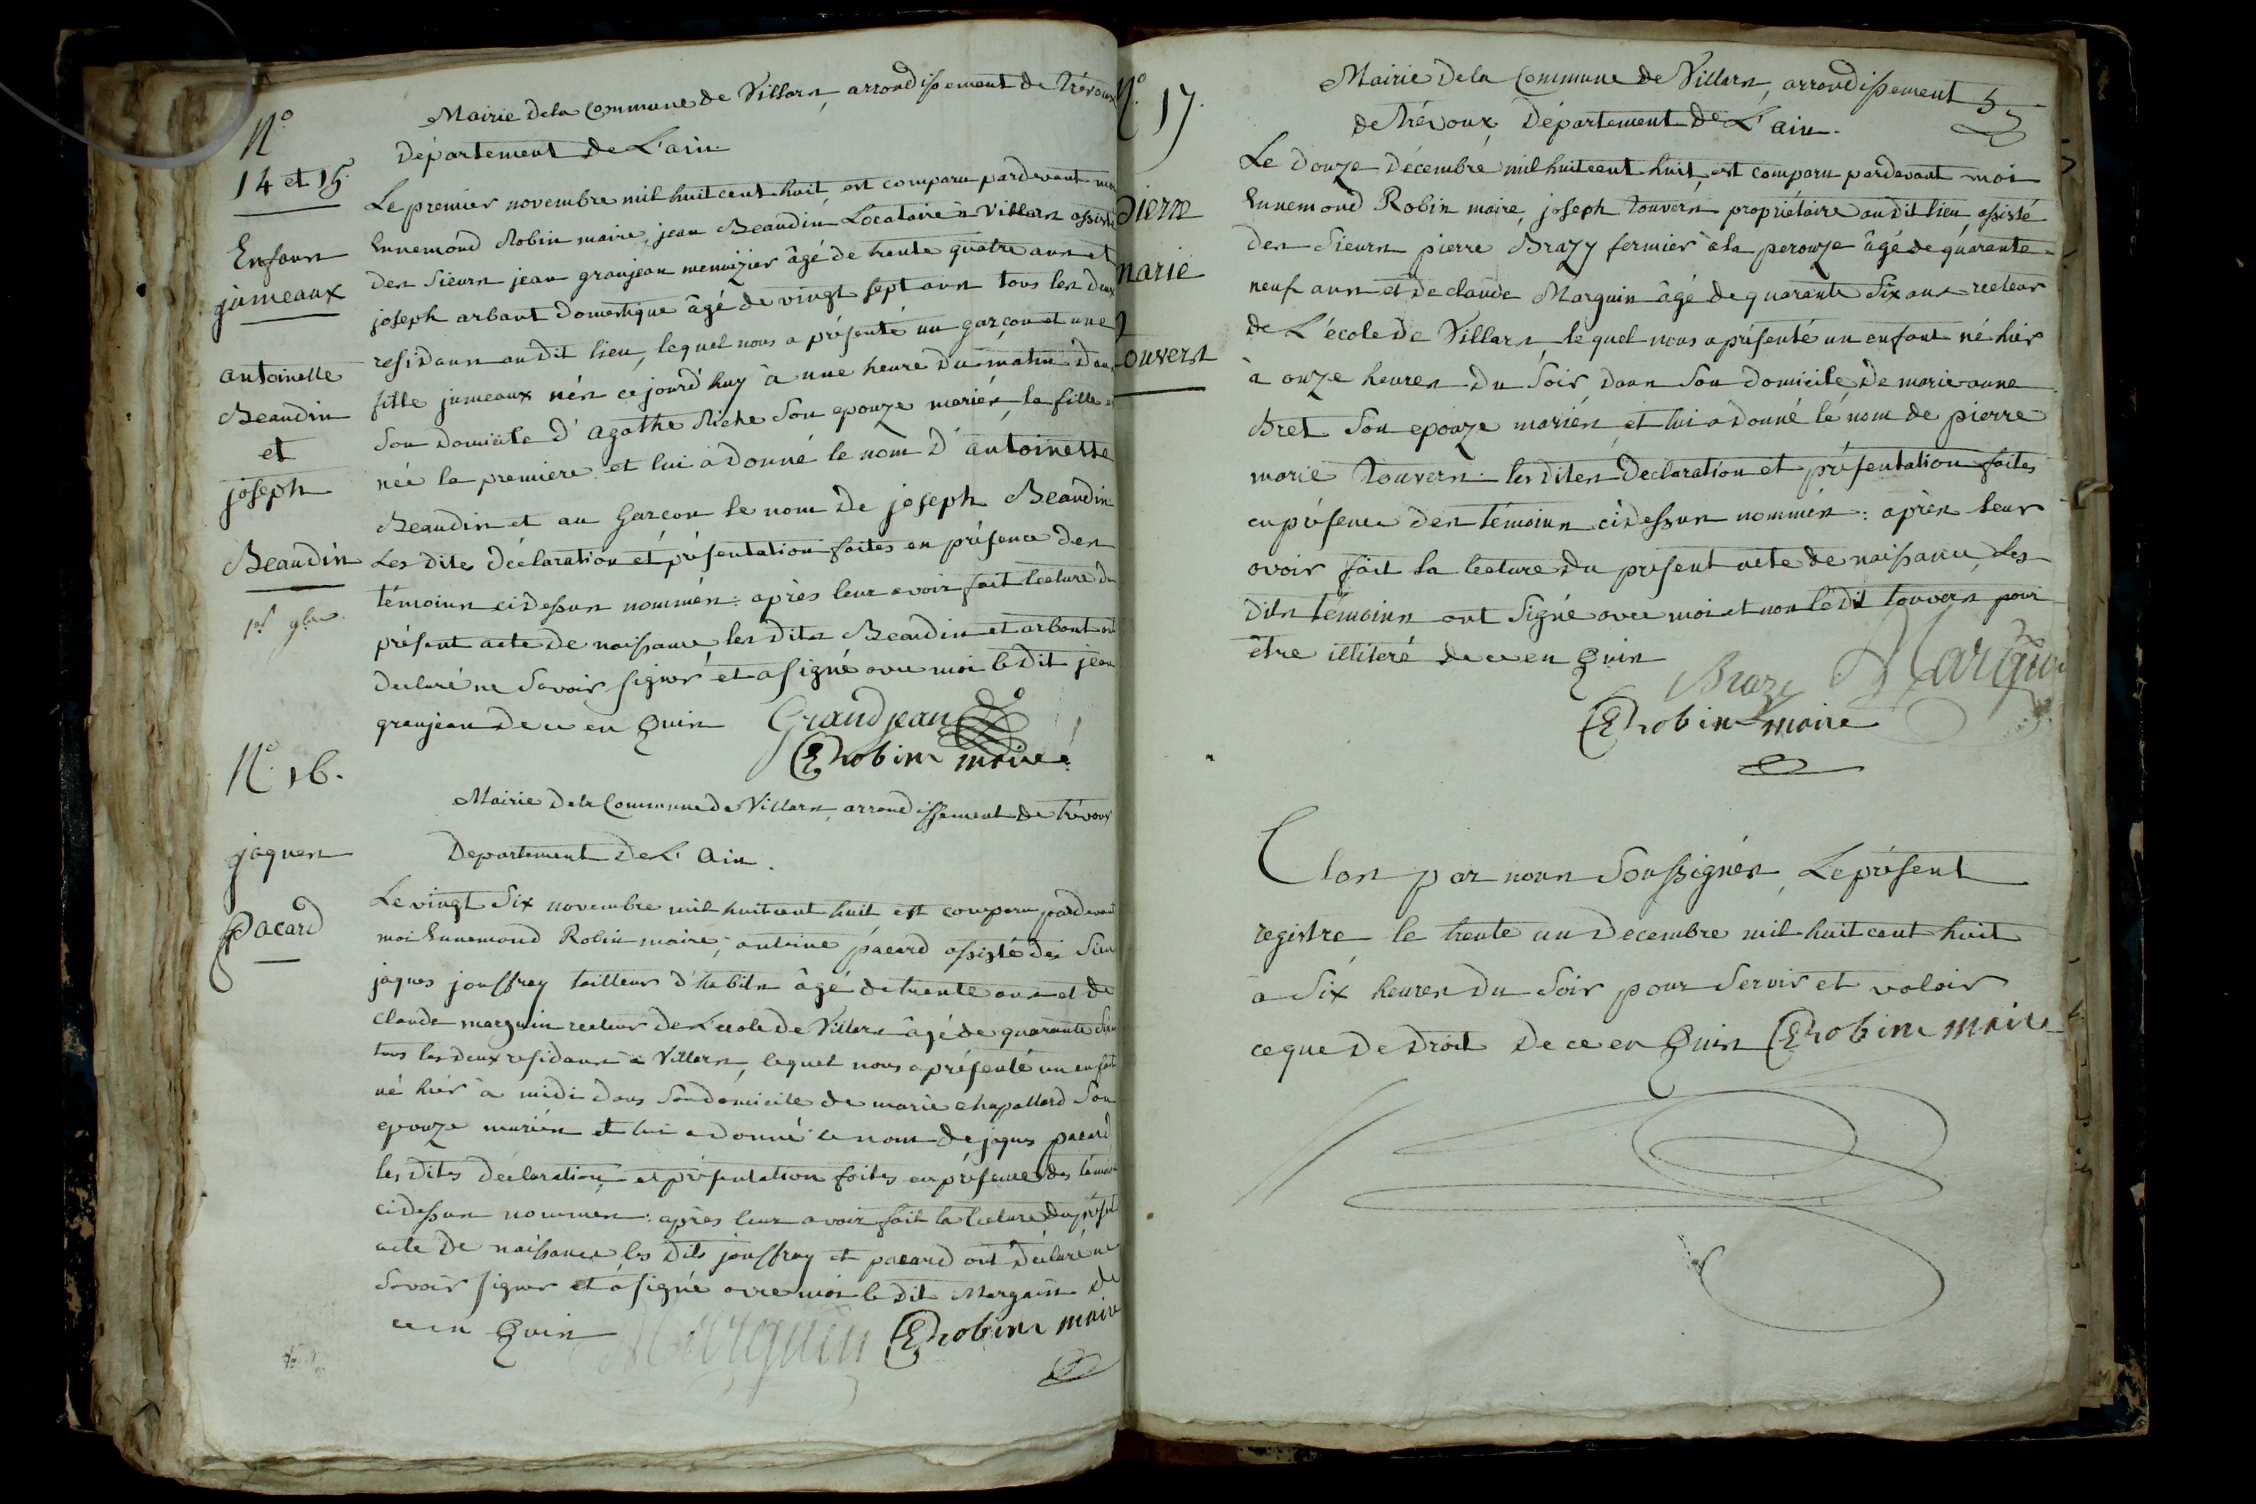 N.º
14 et 15.
Enfans
jumeaux
antoinette
Beaudin
et
joseph
Beaudin
1er 9bre
Mairie de la Commune de Villars, arrondissement de trévoux
Département de L'ain.
Le premier novembre mil huit cent huit, est comparu pardevant moi
Ennemond Robin maire, jean Beaudin Locataire à Villars assisté
des Sieurs jean granjean menuizier âgé de trente quatre ans et
joseph arbant domestique âgé de vingt sept ans tous les deux
residans au dit lieu, lequel nous a présenté un garçon et une
fille jumeaux nés ce jourd'huy à une heure du matin dans
son domicile d'agathe Riche son epouze mariés, la fille
née la premiere et lui a donné le nom d'antoinette
Beaudin et au garcon le nom de joseph Beaudin
Les dite déclaration et présentation faites en présence des
témoins cidessus nommés: après leur avoir fait lecture du
présent acte de naissance, les dits Beaudin et arbant ont
declaré ne Savoir signer et a signé avec moi le dit jean
granjean de ce en Quis Grandjean
E robin maire
N.º 16.
jaques
pacard
Mairie de la Commune de Villars, arrondissement de trévoux
Departement de L'Ain.
Le vingt Six novembre mil huit cent huit est comparu pardevant
moi Ennemond Robin maire, antoine pacard assisté des Sieurs
jaques jouffray tailleur d'habits âgé de trente ans et de
Claude marguin recteur de L'ecole de Villars âgé de quarante Six
tous les deux residans à Villars, lequel nous a présenté un enfant
né hier à midi dans Son domicile de marie chapallard Son
epouze mariés et lui a donné le nom de jaques pacard
les dites déclaration et présentation faites en présence des témoins
cidessus nommés: après leur avoir fait la lecture du présent
acte de naissance les dits jouffray et pacard ont déclaré ne
Savoir signer et a signé avec moi le dit Marguin de
ce en Quis Marguin E robin maire
N.º 17.
pierre
marie
touvers
Mairie de la Commune de Villars, arrondissement
de trévoux, Département de L'ain.
Le douze décembre mil huit cent huit, est comparu pardevant moi
Ennemond Robin maire, joseph touvers propriétaire au dit lieu assisté
des Sieurs pierre Brazy fermier à la perouze âgé de quarante
neuf ans et de claude Marguin âgé de quarante Six ans recteur
de L'école de Villars, lequel nous a présenté un enfant né hier
à onze heures du Soir dans Son domicile de marie anne
Bret Son epouze mariés et lui a donné le nom de pierre
marie touvers: les dites declaration et présentation faites
en présence des témoins cidessus nommés: après leur
avoir fait la lecture du present acte de naissance, les
dits témoins ont Signé avec moi et non le dit touvers pour
être illiteré de ce en Quis
Brazy Marguin
E robin maire
Clos par nous Soussignés, Le présent
registre le trente un decembre mil huit cent huit
à Six heures du Soir pour Servir et valoir
ce que de droit de ce en Quis E robin maire